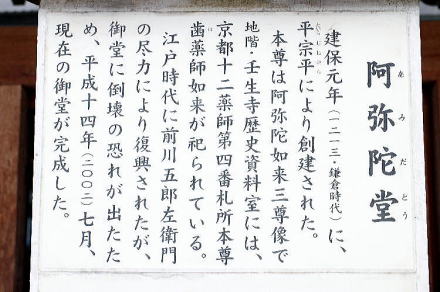 阿弥陀堂
あみだどう
建保元年（一二一三・鎌倉時代）に、
平宗平により創建された。
本尊は阿弥陀如来三尊像で
地階・壬生寺歴史資料室には、
京都十二薬師第四番札所本尊
歯薬師如来が祀られている。
江戸時代に前川五郎左衛門
の尽力により復興されたが、
御堂に倒壊の恐れが出たた
め、平成十四年（二〇〇二）七月、
現在の御堂が完成した。